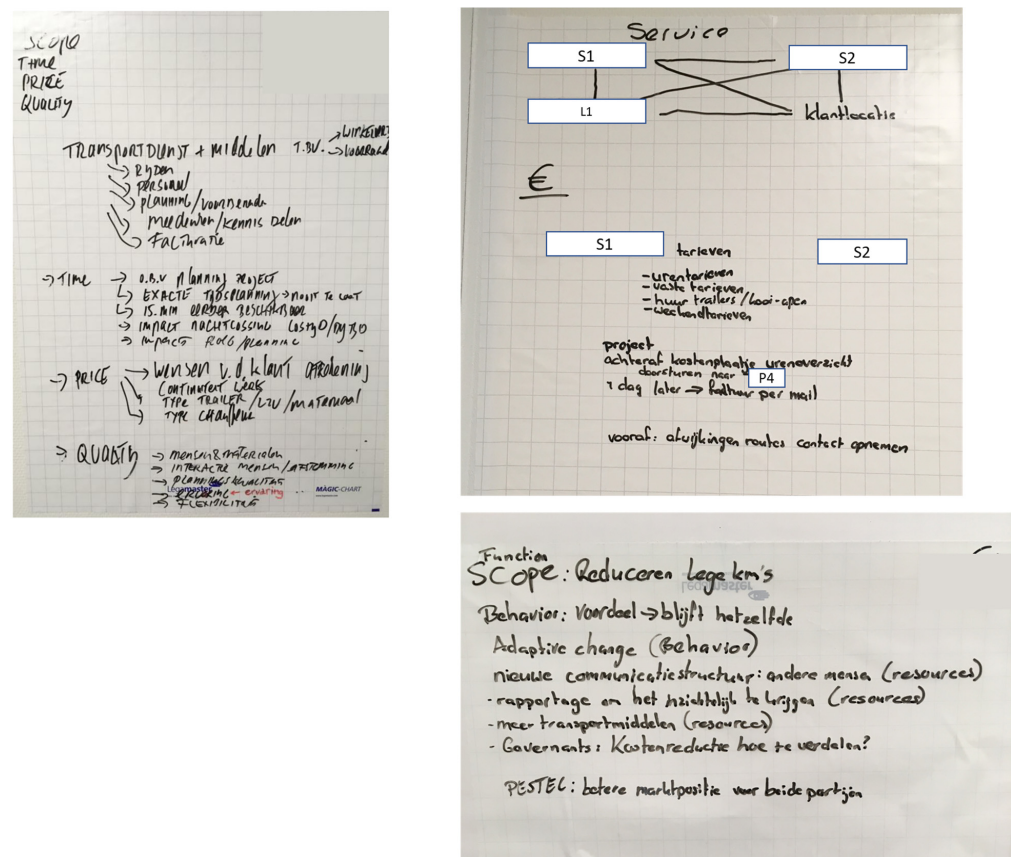 SCOPE
TIME
PRICE
QUALITY
TRANSPORTDIENST + MIDDELEN T.B.V. → WINKELWA
→ VOORRAAD
→ RIJDEN
→ PERSONEEL
→ PLANNING/VOORBEREIDEN
MEEDENKEN/KENNIS DELEN
→ FACTURATIE
→ TIME → O.B.V PLANNING PROJECT
EXACTE TIJDSPLANNING → NOOIT TE LAAT
15.MIN EERDER BESCHIKBAAR
→ IMPACT NACHTLOSSING
→ IMPACT /PLANNING
→ PRICE → WENSEN V.D. KLANT
CONTINUITEIT WERK
TYPE TRAILER/LZV/MATERIAAL
TYPE CHAUFFEUR
→ QUALITY → MENSEN & MATERIALEN
→ INTERACTIE MENSEN/AFSTEMMING
→ PLANNINGSKWALITEIT
Legamaster
← ervaring
MAGIC-CHART
→ FLEXIBILITEIT
Service
S1
S2
L1
klantlocatie
€
S1 tarieven
S2
- urentarieven
- vaste tarieven
- huur trailers / kooi-apen
- weekendtarieven
project
achteraf kostenplaatje urenoverzicht
doorsturen naar P4
1 dag later → factuur per mail
vooraf: afwijkingen routes contact opnemen
Function
SCOPE: Reduceren lege km's
Legamaster
Behavior: voordeel → blijft hetzelfde
Adaptive change (Behavior)
nieuwe communicatiestructuur: andere mensen (resources)
- rapportage om het inzichtelijk te krijgen (resources)
- meer transportmiddelen (resources)
- Governants: Kostenreductie hoe te verdelen?
PESTEL: betere marktpositie voor beide partijen